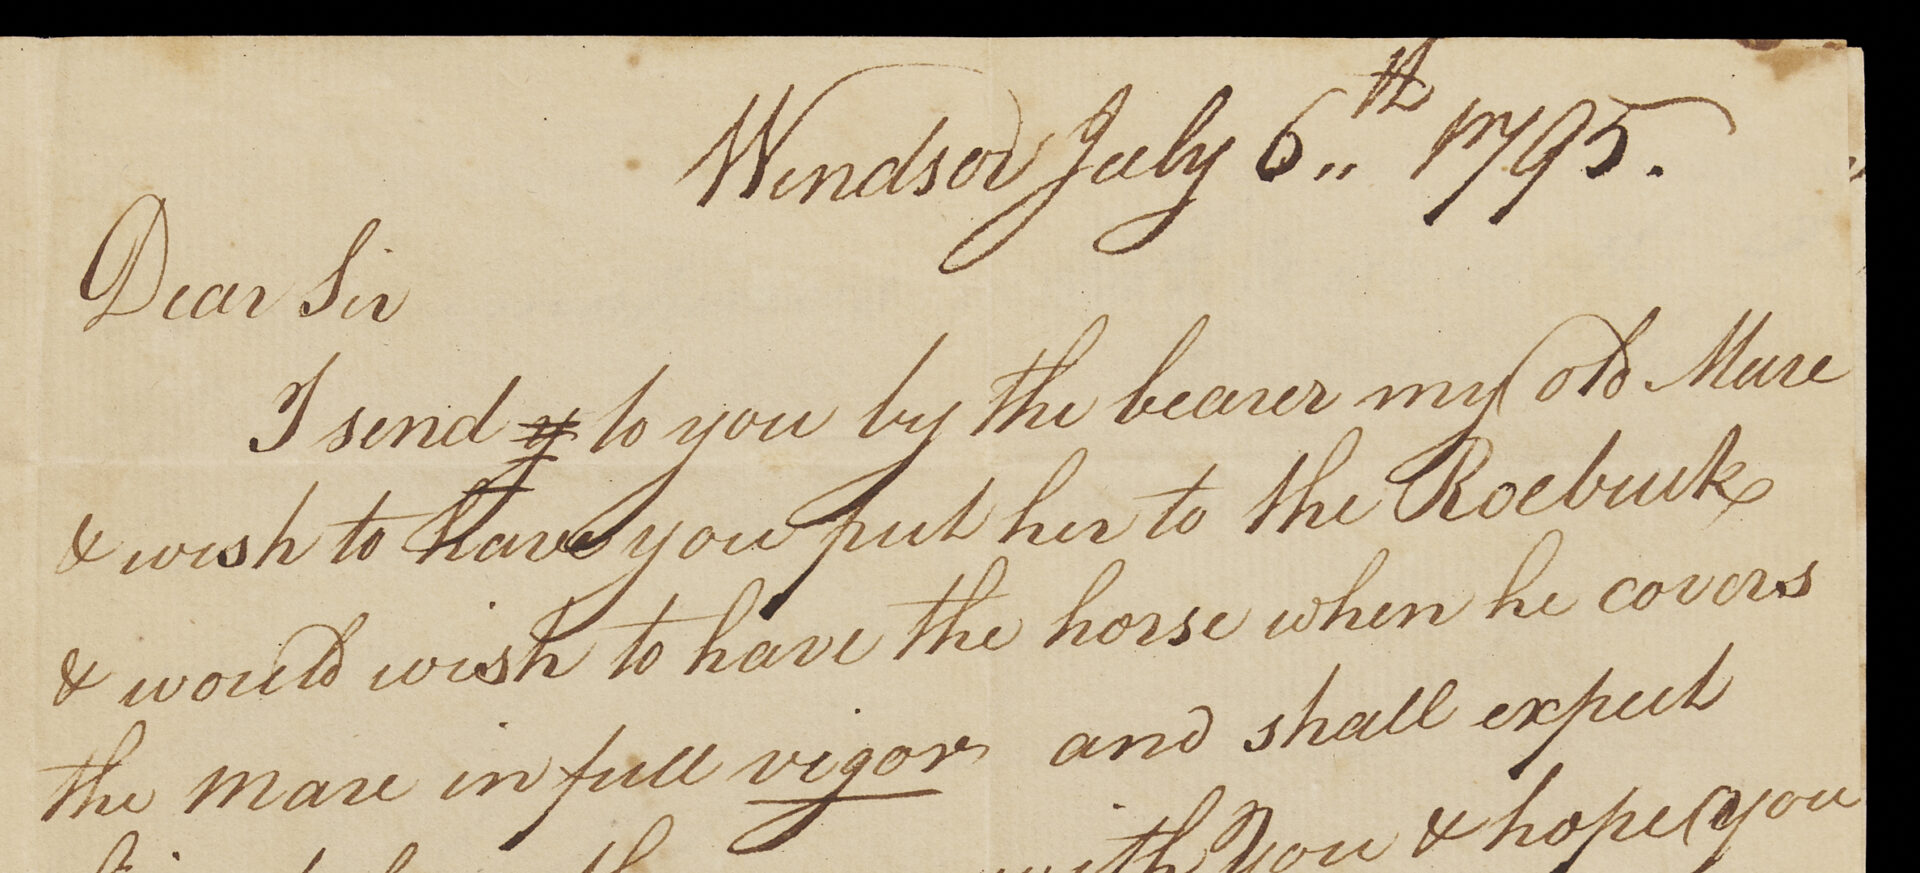 Windsor July 6th 1795.
Dear Sir
I send y to you by the bearer my old Mare
& wish to have you put her to the Roebuck
& would wish to have the horse when he covers
the Mare in full vigor and shall expect
with you & hope you